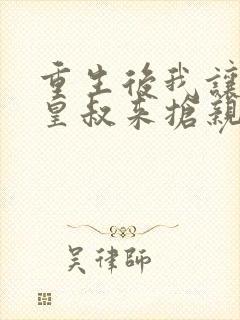 重生後我讓
皇叔來搶親
吳律師